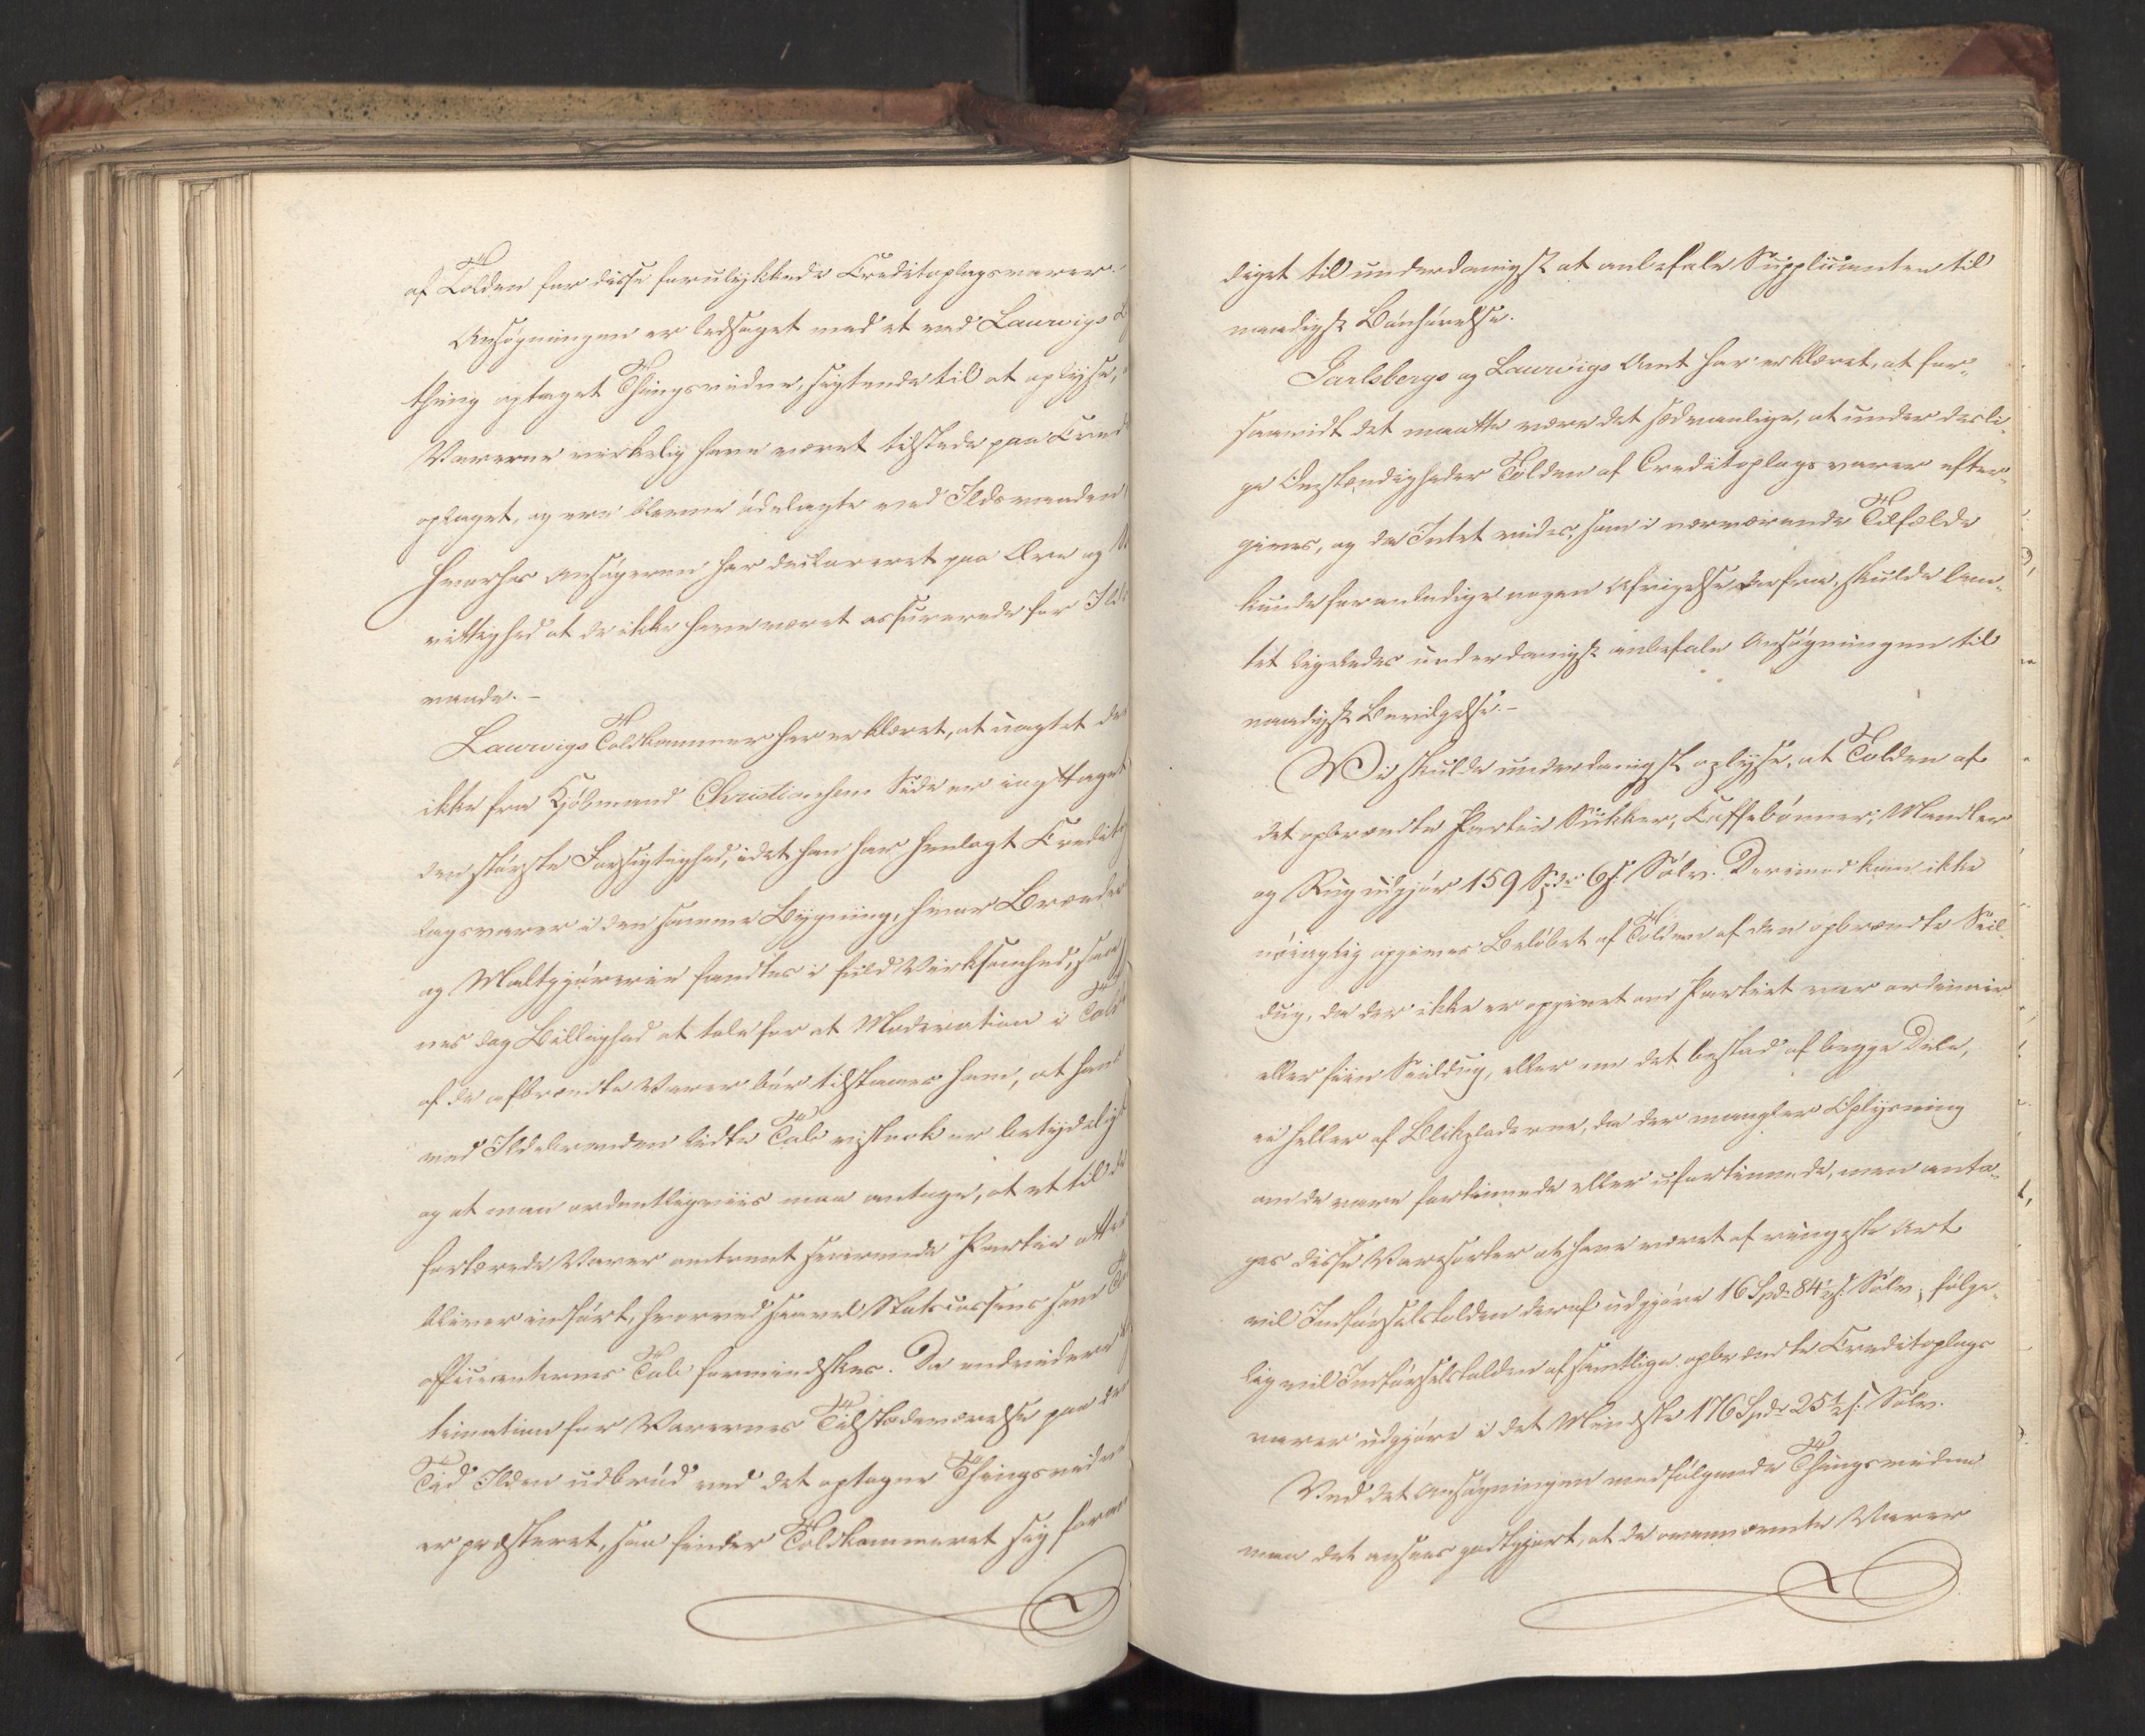 af Tolden for disse forulykkede Creditoplagsvarer.
Ansøgningen er ledsaget med et ved Laurvigs
thing optaget Thingsvidne, sigtende til at oplyse,
Varerne virkelig have været tilstede paa Cred
oplaget, og ere blevne ødelagte ved Ildsvaaden
hvorhos Ansøgeren har declareret paa Ære og
vittighed at de ikke have været assurerede for Ilds
vaade. -
Laurvigs Toldkammer har erklæret, at uagtet der
ikke fra Kjøbmand Christiansens Side er iagttaget
den største Forsigtighed, idet han har henlagt Credito
lagsvarer i den samme Bygning, hvor Brænde
og Maltgjøreriet fandtes i fuld Virksomhed, sy
nes dog Billighed at tale for at Moderation i Told
af de afbrændte Varer bør tilstaaes ham, at hans
ved Ildebranden lidte Tab vistnok er betydeligt
og at man ordentligviis maa antage, at et til de
fortærede Varer omtrent svarende Partie atter
bliver indført, hvorved saavel Statscassens som
officianternes Tab formindskes. Da endvidere
timation for Varernes Tilstedeværelse paa den
Tid Ilden udbrød ved det optagne Thingsvidne
er præsteret, saa finder Toldkammeret sig foran
diget til underdanigst at anbefale Supplicanten til
naadigst Bønhørelse.
Jarlsbergs og Laurvigs Amt har erklæret, at for-
saavidt det maatte være det sædvanlige, at under desli-
ge Omstændigheder Tolden af Creditoplagsvarer efter-
gives, og da Intet vides, som i nærværende Tilfælde
kunde foranledige nogen Afvigelse derfra, skulde Am-
tet ligeledes underdanigst anbefale Ansøgningen til
naadigst Bevilgelse. -
Vi skulde underdanigst oplyse, at Tolden af
det opbrændte Partie Sukker, Caffebønner, Mandler
og Rug udgjør 159 Spdr. 6 s. Sølv. Derimod kan ikke
nøiagtig opgives Beløbet af Tolden af den opbrændte Seil-
dug, da der ikke er opgivet om Partiet var ordinair
eller fiin Seildug, eller om det bestod af begge Dele,
ei heller af Blikpladerne, da der mangler Oplysning
om de vare fortinnede eller ufortinnede, men anta-
ges disse Varesorter at have været af ringeste Art
vil Indførselstolden deraf udgjøre 16 Spdr. 84½ s. Sølv, følge-
lig vil Indførselstolden af samtlige opbrændte Creditoplags
varer udgjøre i det Mindste 176 Spdr. 25½ s. Sølv.
Ved det Ansøgningen medfølgende Thingsvidne
maa det ansees godtgjort, at de ovennævnte Varer